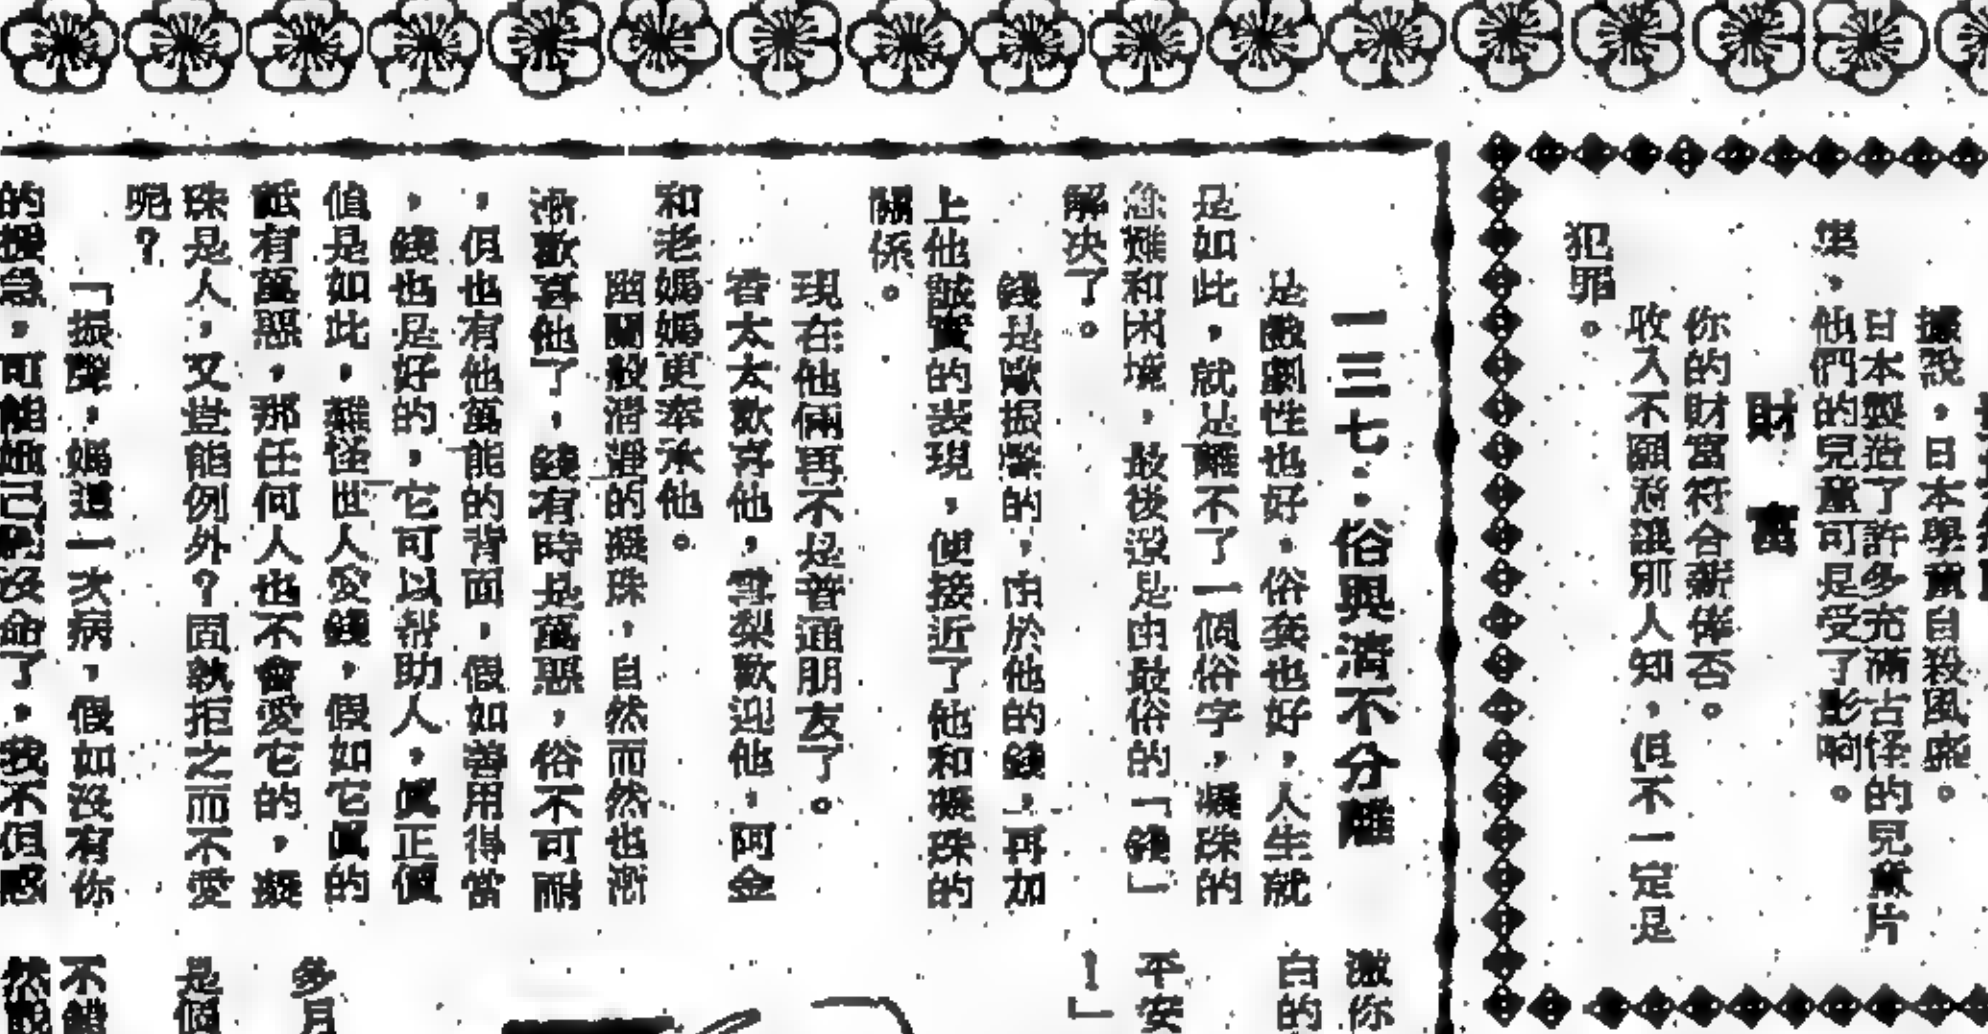 據說，日本學童自殺風氣。
日本製造了許多充滿古怪的兒童片
集，他們的兒童可是受了影响。
財富
你的財富符合薪俸否。
收入不願意讓別人知，但不一定是
犯罪。
一三七：俗與清不分離
是戲劇性也好，俗套也好，人生就
是如此，就是離不了一個俗字，凝珠的
急難和困境，最後還是由最俗的「錢」
解决了。
錢是歐振聲的，由於他的錢，再加
上他誠實的表現，便接近了他和凝珠的
關係。
現在他倆再不是普通朋友了。
香太太歡喜他，雪梨歡迎他，阿金
和老媽媽更奉承他。
幽蘭般潛靜的凝珠，自然而然也漸
漸歡喜他了，錢有時是萬惡，俗不可耐
，但也有他萬能的背面，假如善用得當
，錢也是好的，它可以帮助人，眞正價
值是如此，難怪世人愛錢，假如它眞的
祇有萬惡，那任何人也不會愛它的，凝
珠是人，又豈能例外？固執拒之而不愛
呢？
「振聲，媽這一次病，假如沒有你
的援急，可能她已經沒命了，我不但感
激你
白的
平安
！」
多月
是個
不錯